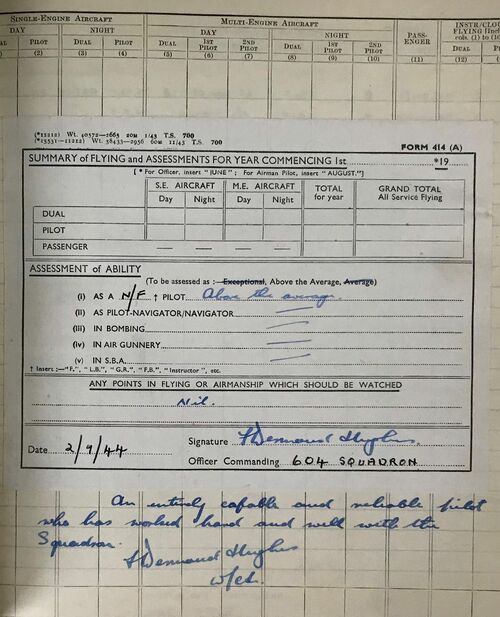 SINGLE-ENGINE AIRCRAFT MULTI-ENGINE AIRCRAFT
DAY NIGHT DAY NIGHT PASS-ENGER INSTR/CLOU FLYING [Incl cols. (1) to (10
DUAL PILOT DUAL PILOT DUAL 1ST PILOT 2ND PILOT DUAL 1ST PILOT 2ND PILOT DUAL
(2) (3) (4) (5) (6) (7) (8) (9) (10) (11) (12)
T.S. 700
T.S. 700
FORM 414 (A)
SUMMARY of FLYING and ASSESSMENTS FOR YEAR COMMENCING 1st *19
[* For Officer, insert "JUNE"; For Airman Pilot, insert "AUGUST."]
S.E. AIRCRAFT M.E. AIRCRAFT TOTAL for year GRAND TOTAL All Service Flying
Day Night Day Night
DUAL
PILOT
PASSENGER — — — —
ASSESSMENT of ABILITY
(To be assessed as :—Exceptional, Above the Average, Average)
(i) AS A N/F † PILOT Above the average.
(ii) AS PILOT-NAVIGATOR/NAVIGATOR —
(iii) IN BOMBING —
(iv) IN AIR GUNNERY —
(v) IN S.B.A. —
† Insert :—"F.", "L.B.", "G.R.", "F.B.", "Instructor", etc.
ANY POINTS IN FLYING OR AIRMANSHIP WHICH SHOULD BE WATCHED
Nil.
Date 2/9/44 Signature Desmond Hughes
Officer Commanding 604 SQUADRON
An entirely capable and reliable pilot
who has worked hard and well with the
Squadron.
Desmond Hughes